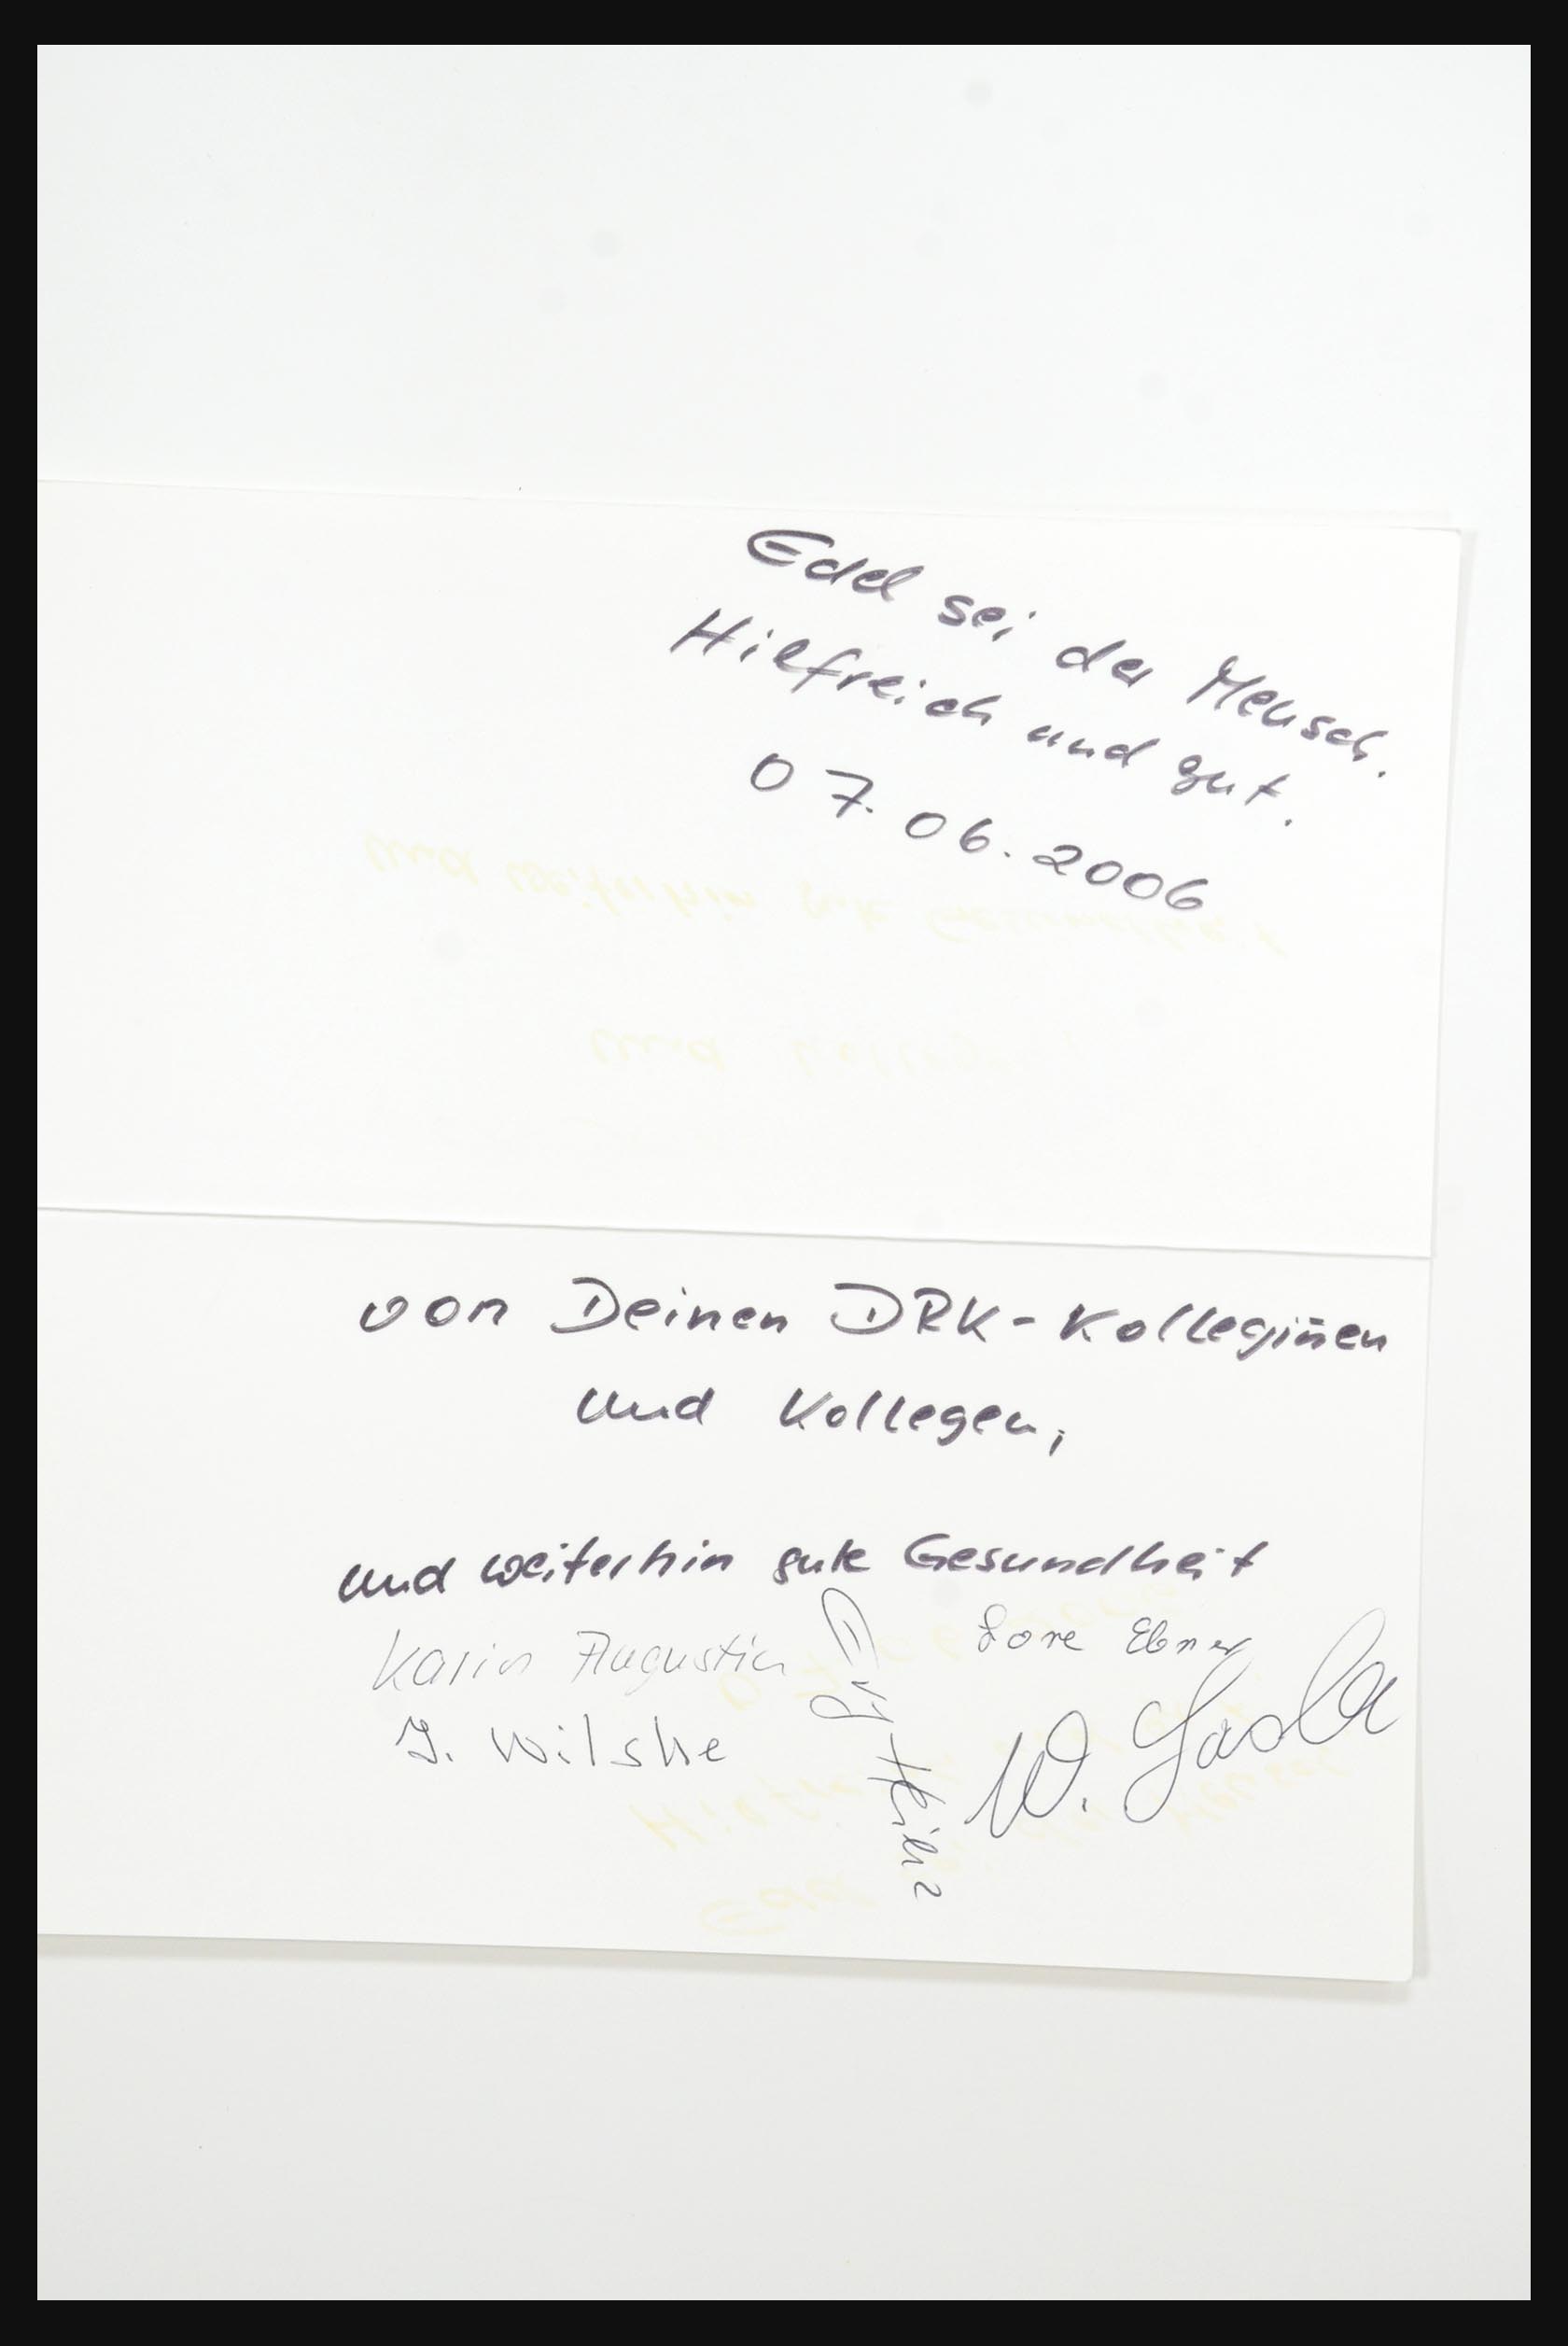 Edel sei der Mensch.
Hilfreich und gut.
07.06.2006
von Deinen DRK-Kollegin̄en
und Kollegen,
und weiterhin gute Gesundheit
Karin Augustin
Lore Ebner
J. Wilske
Heinz
W.